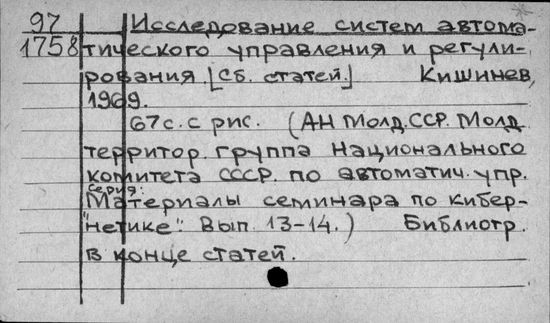 97 Исследование систем автома-
1758 тического управления и регули-
рования. [Сб. статей.] Кишинев,
1969.
67 с. с рис. (АН Молд.ССР. Молд.
территор. группа Национального
комитета СССР. по автоматич. упр.
Серия:
Материалы семинара по кибер-
"нетике". Вып. 13-14.) Библиогр.
в конце статей.